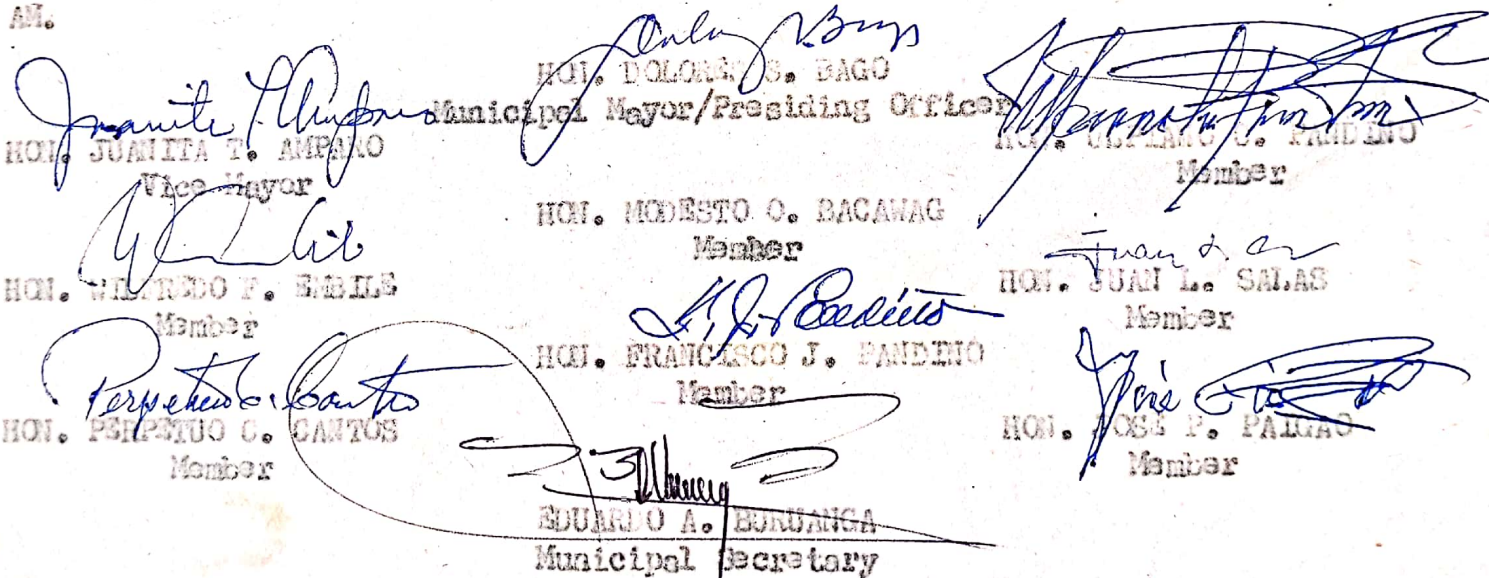 AM.
HON. DOLORES S. BAGO
Municipal Mayor/Presiding Officer
HON. JUANITA T. AMPARO
Vice Mayor
HON. C. PANDINO
Member
HON. MODESTO O. BACAWAG
Member
HON. WILFREDO F. EMBILE
Member
HON. JUAN L. SALAS
Member
HON. FRANCISCO J. PANDINO
Member
Perpetuo C. Cantos
HON. PERPETUO C. CANTOS
Member
HON. JOSE P. PAIGAO
Member
EDUARDO A. BURUANGA
Municipal Secretary